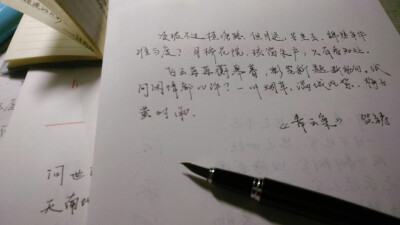 凌波不过横塘路，但目送、芳尘去。锦瑟年华
谁与度？月桥花院，琐窗朱户，只有春知处。
飞云冉冉蘅皋暮，彩笔新题断肠句。试
问闲情都几许？一川烟草，满城风絮，梅子
黄时雨。
《青玉案》 贺铸
问世
天南地